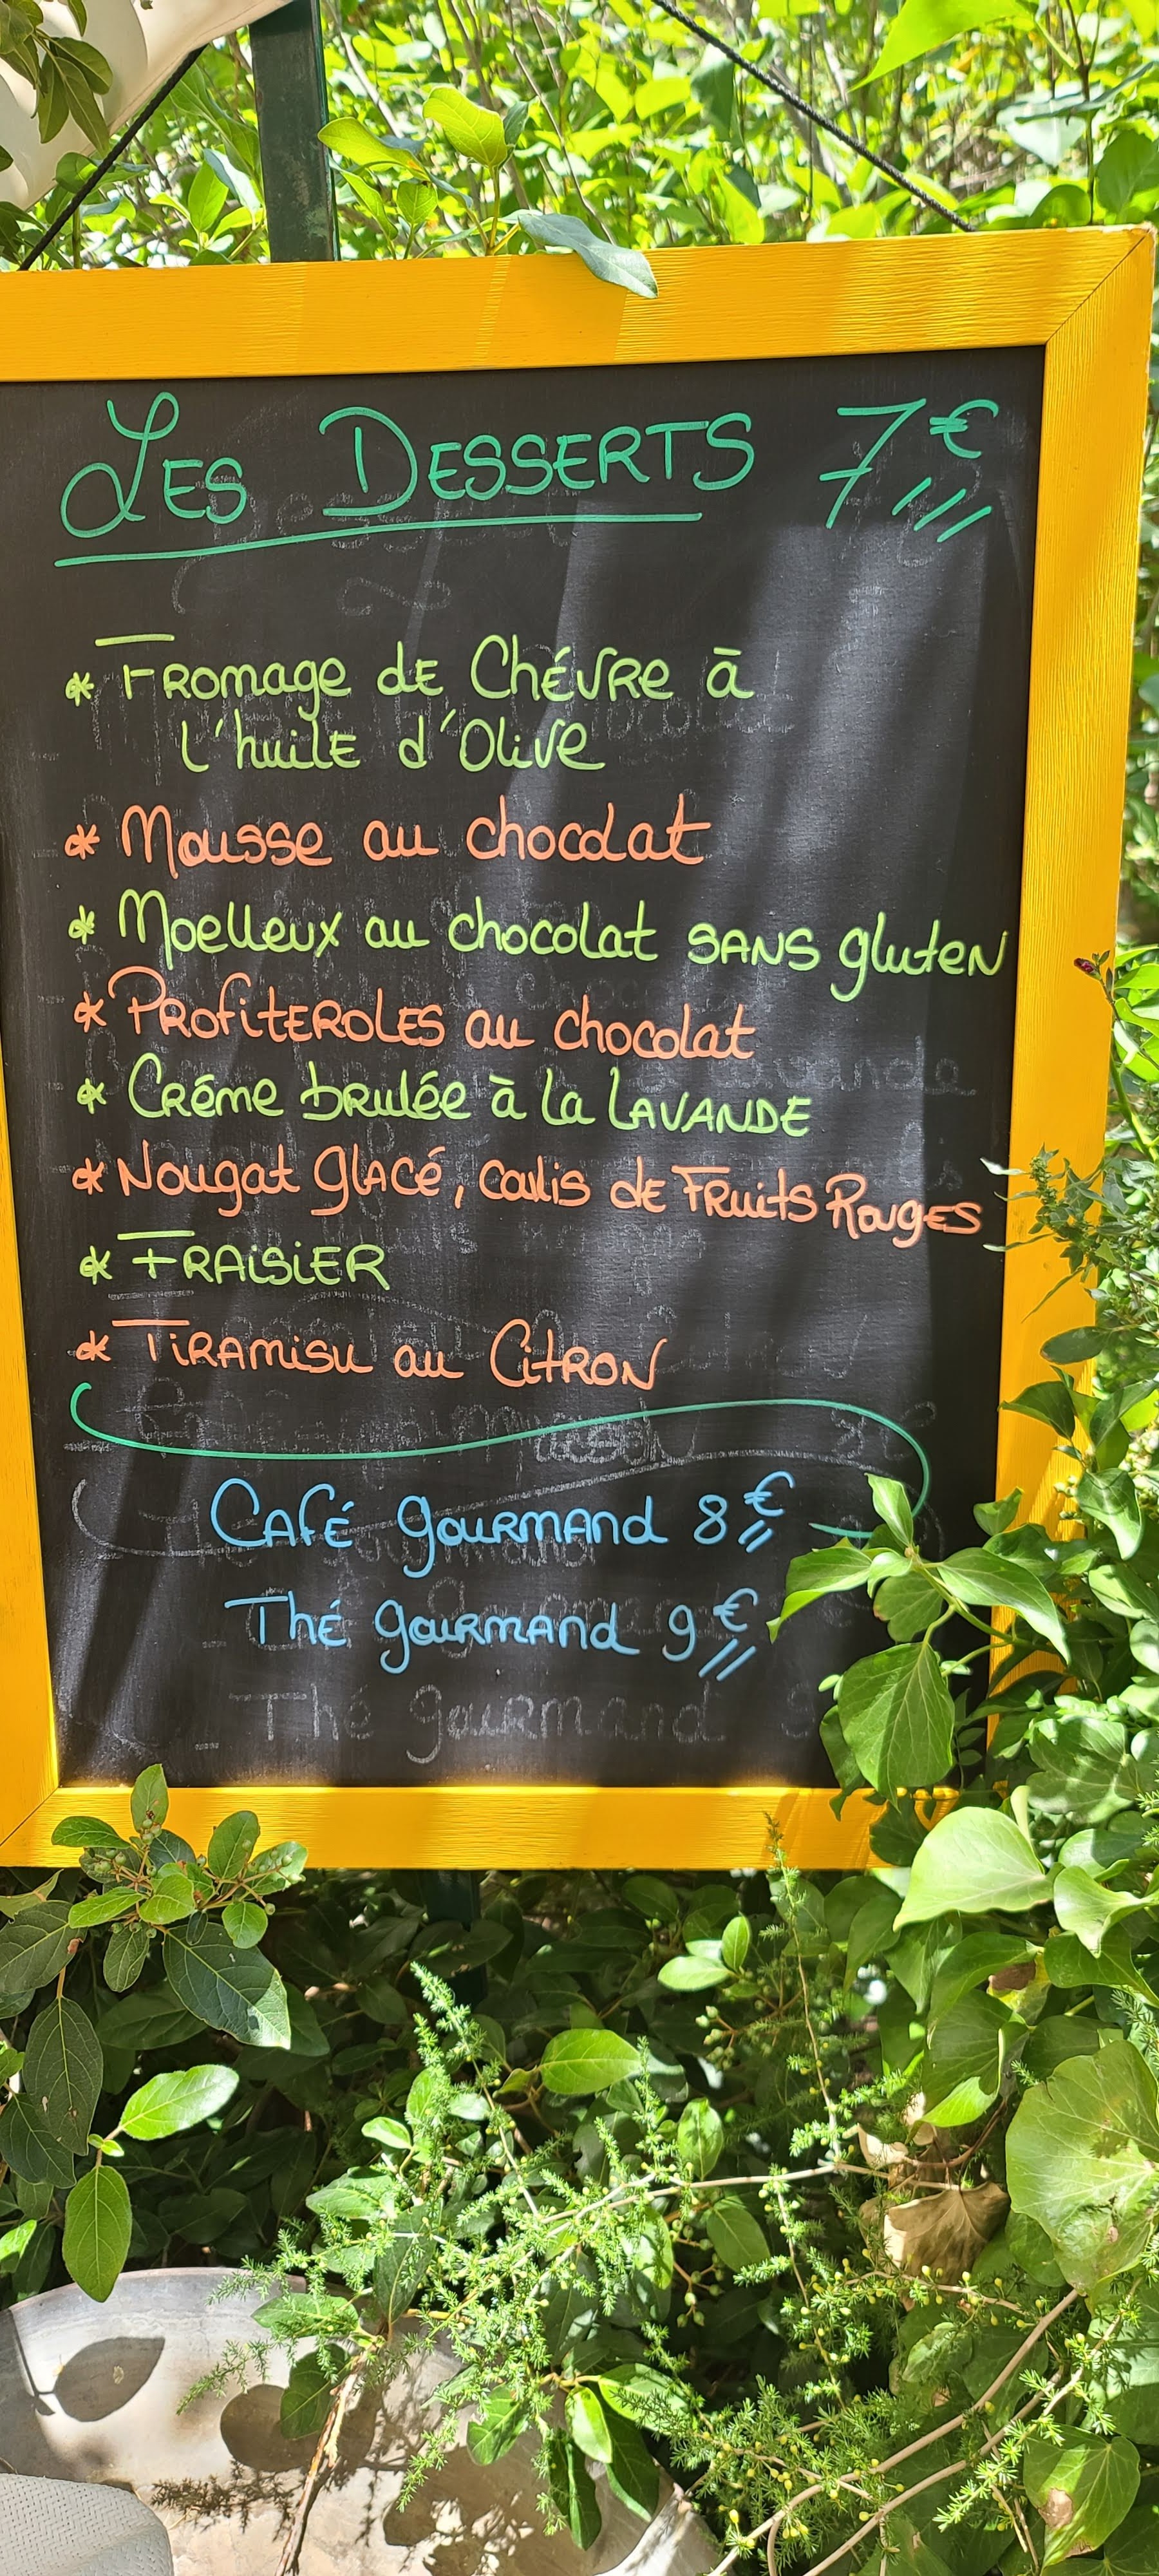 Les Desserts 7€
* Fromage de Chévre à
l'huile d'Olive
* Mousse au chocolat
* Moelleux au chocolat sans gluten
* Profiteroles au chocolat
* Créme brulée à la Lavande
* Nougat Glacé, coulis de Fruits Rouges
* Fraisier
* Tiramisu au Citron
Café gourmand 8€
Thé gourmand 9€
Thé gourmand 9